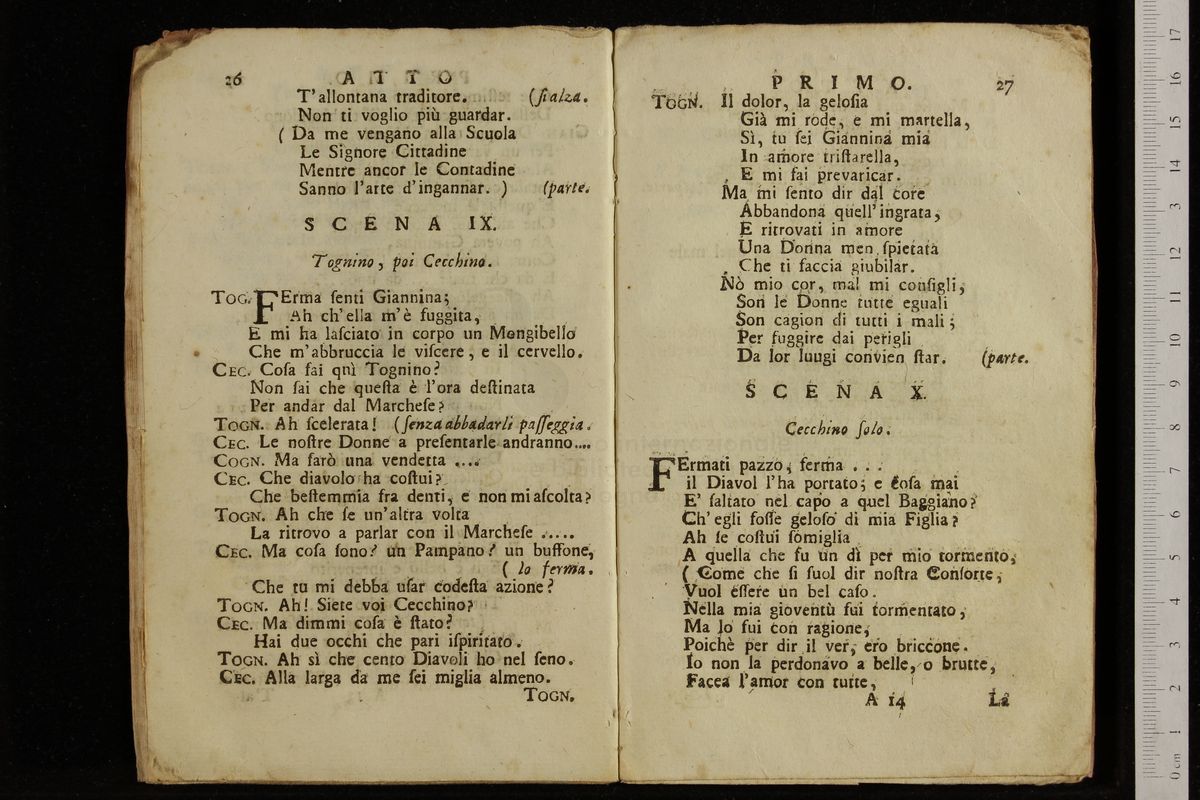 26 A T T O
T'allontana traditore. (ſi alza.
Non ti voglio più guardar.
( Da me vengano alla Scuola
Le Signore Cittadine
Mentre ancor le Contadine
Sanno l'arte d'ingannar. ) (parte.
S C E N A IX.
Tognino, poi Cecchino.
TOG. FErma ſenti Giannina;
Ah ch'ella m'è fuggita,
E mi ha laſciato in corpo un Mongibello
Che m'abbruccia le viſcere, e il cervello.
CEC. Coſa fai qnì Tognino?
Non ſai che queſta è l'ora deſtinata
Per andar dal Marcheſe?
TOGN. Ah ſcelerata! (ſenza abbadarli paſſeggia.
CEC. Le noſtre Donne a preſentarle andranno....
COGN. Ma farò una vendetta ....
CEC. Che diavolo ha coſtui?
Che beſtemmia fra denti, e non mi aſcolta?
TOGN. Ah che ſe un'altra volta
La ritrovo a parlar con il Marcheſe .....
CEC. Ma coſa ſono? un Pampano? un buffone,
( lo ferma.
Che tu mi debba uſar codeſta azione?
TOGN. Ah! Siete voi Cecchino?
CEC. Ma dimmi coſa è ſtato?
Hai due occhi che pari iſpiritato.
TOGN. Ah sì che cento Diavoli ho nel ſeno.
CEC. Alla larga da me ſei miglia almeno.
TOGN.
P R I M O. 27
TOGN. Il dolor, la geloſia
Già mi rode, e mi martella,
Sì, tu ſei Giannina mia
In amore triſtarella,
E mi fai prevaricar.
Ma mi ſento dir dal core
Abbandona quell'ingrata,
E ritrovati in amore
Una Donna men ſpietata
Che ti faccia giubilar.
Nò mio cor, mal mi configli,
Son le Donne tutte eguali
Son cagion di tutti i mali;
Per fuggire dai perigli
Da lor luugi convien ſtar. (parte.
S C E N A X.
Cecchino ſolo.
FErmati pazzo, ferma . . .
il Diavol l'ha portato; e coſa mai
E' ſaltato nel capo a quel Baggiano?
Ch'egli foſſe geloſo di mia Figlia?
Ah ſe coſtui ſomiglia
A quella che fu un dì per mio tormento,
( Come che ſi ſuol dir noſtra Conſorte,
Vuol eſſere un bel caſo.
Nella mia gioventù fui tormentato,
Ma lo fui con ragione,
Poichè per dir il ver, ero briccone.
Io non la perdonavo a belle, o brutte,
Facea l'amor con tutte,
A 14 La